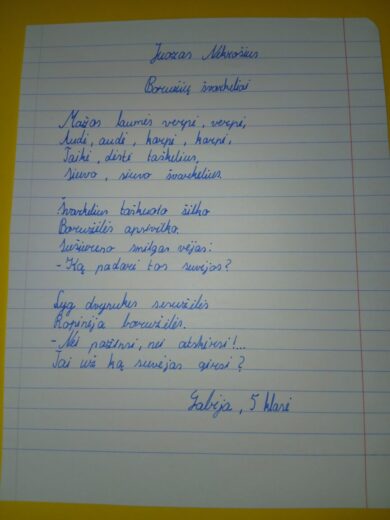 Juozas Nekrošius
Boružių švarkeliai
Mažos laumės verpė, verpė,
Audė, audė, karpė, karpė,
Taikė, dėstė taškelius,
Siuvo, siuvo švarkelius.
Švarkelius taškuoto šilko
Boružėlės apsivilko.
Sušiureno smilgas vėjas:
- Ką padarė tos siuvėjos?
Lyg dvynukės seružėlės
Ropinėja boružėlės.
- Nei pažinsi, nei atskirsi!...
Tai už ką siuvėjas girsi?
Gabėja, 5 klasė